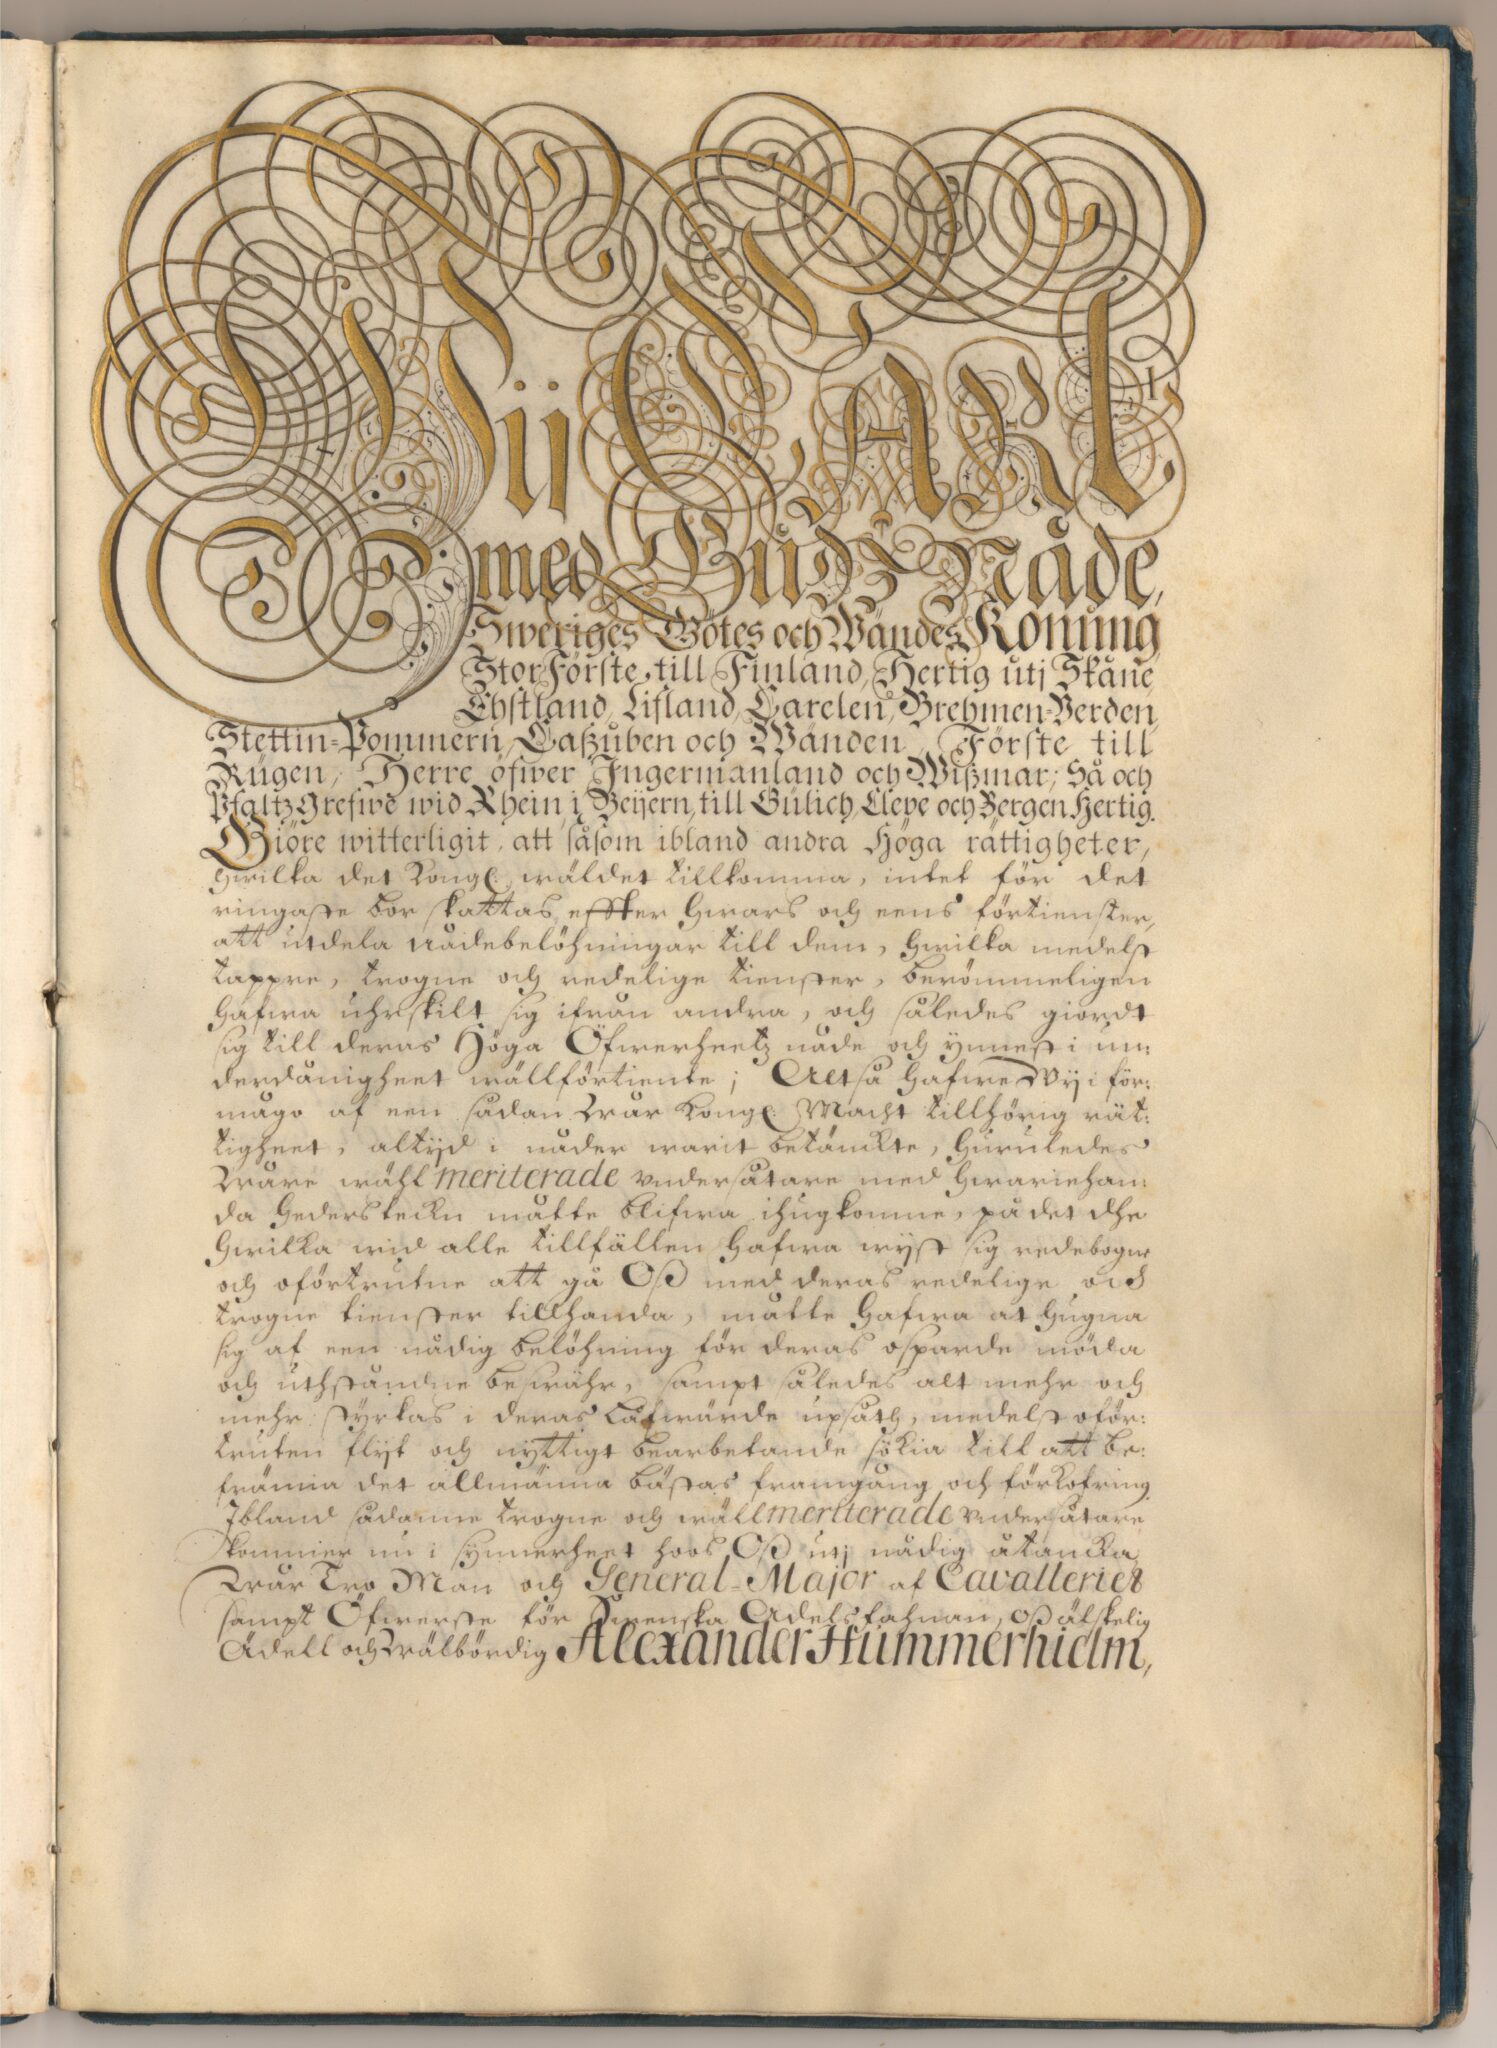 Wii Carl
med Gudz Nåde,
Sweriges Götes och Wändes Konung
StorFörste till Finland, Hertig utj Skåne
Ehstland, Lifland, Carelen, Brehmen-Verden
Stettin-Pommern, Caßuben och Wänden, Förste till
Rügen, Herre öfwer Ingermanland och Wißmar; Så och
Pfaltzgrefwe wid Rhein i Beijern, till Gülich, Cleve och Bergen Hertig.
Giöre witterligit, att såsom ibland andra Höga rättigheter,
hwilka det Kongl. wäldet tillkomma, intet för det
ringaste bör skattas, effter hwars och eens förtienster,
att utdela nådebelöhningar till dem, hwilka medelst
tappre, trogne och redelige tienster, berömmeligen
hafwa uhrskilt sig ifrån andra, och således giordt
sig till deras Höga Öfwerheetz nåde och ynnest i un:
derdånigheet wällförtiente; Altså hafwe Wij i för:
mågo af een sådan Wår Kongl. Macht tillhörig rät:
tigheet, altijd i nåder warit betänckte, huruledes
Wåre wähl meriterade undersåtare med hwariehan:
da hederstecken måtte blifwa ihugkomne, på det dhe
hwilka wid alle tillfällen hafwa wijst sig redebogne
och oförtrutne att gå Oß med deras redelige och
trogne tienster tillhanda, måtte hafwa at hugna
sig af een nådig belöhning för deras osparde möda
och uthståndne beswähr, sampt således alt mehr och
mehr styrkas i deras låfwärde upsåth, medelst oför:
truten flijt och nyttigt bearbetande sökia till att be:
främia det allmänna bästas framgång och förkofring
Ibland sådanne trogne och wäll meriterade undersåtare
kommer nu i synnerheet hoos Oß utj nådig åtancka
Wår Tro Man och General-Major af Cavalleriet
sampt Öfwerste för Swenska Adelsfahnan, Oß älskelig
Adell och Wälbördig Alexander Hummerhielm,